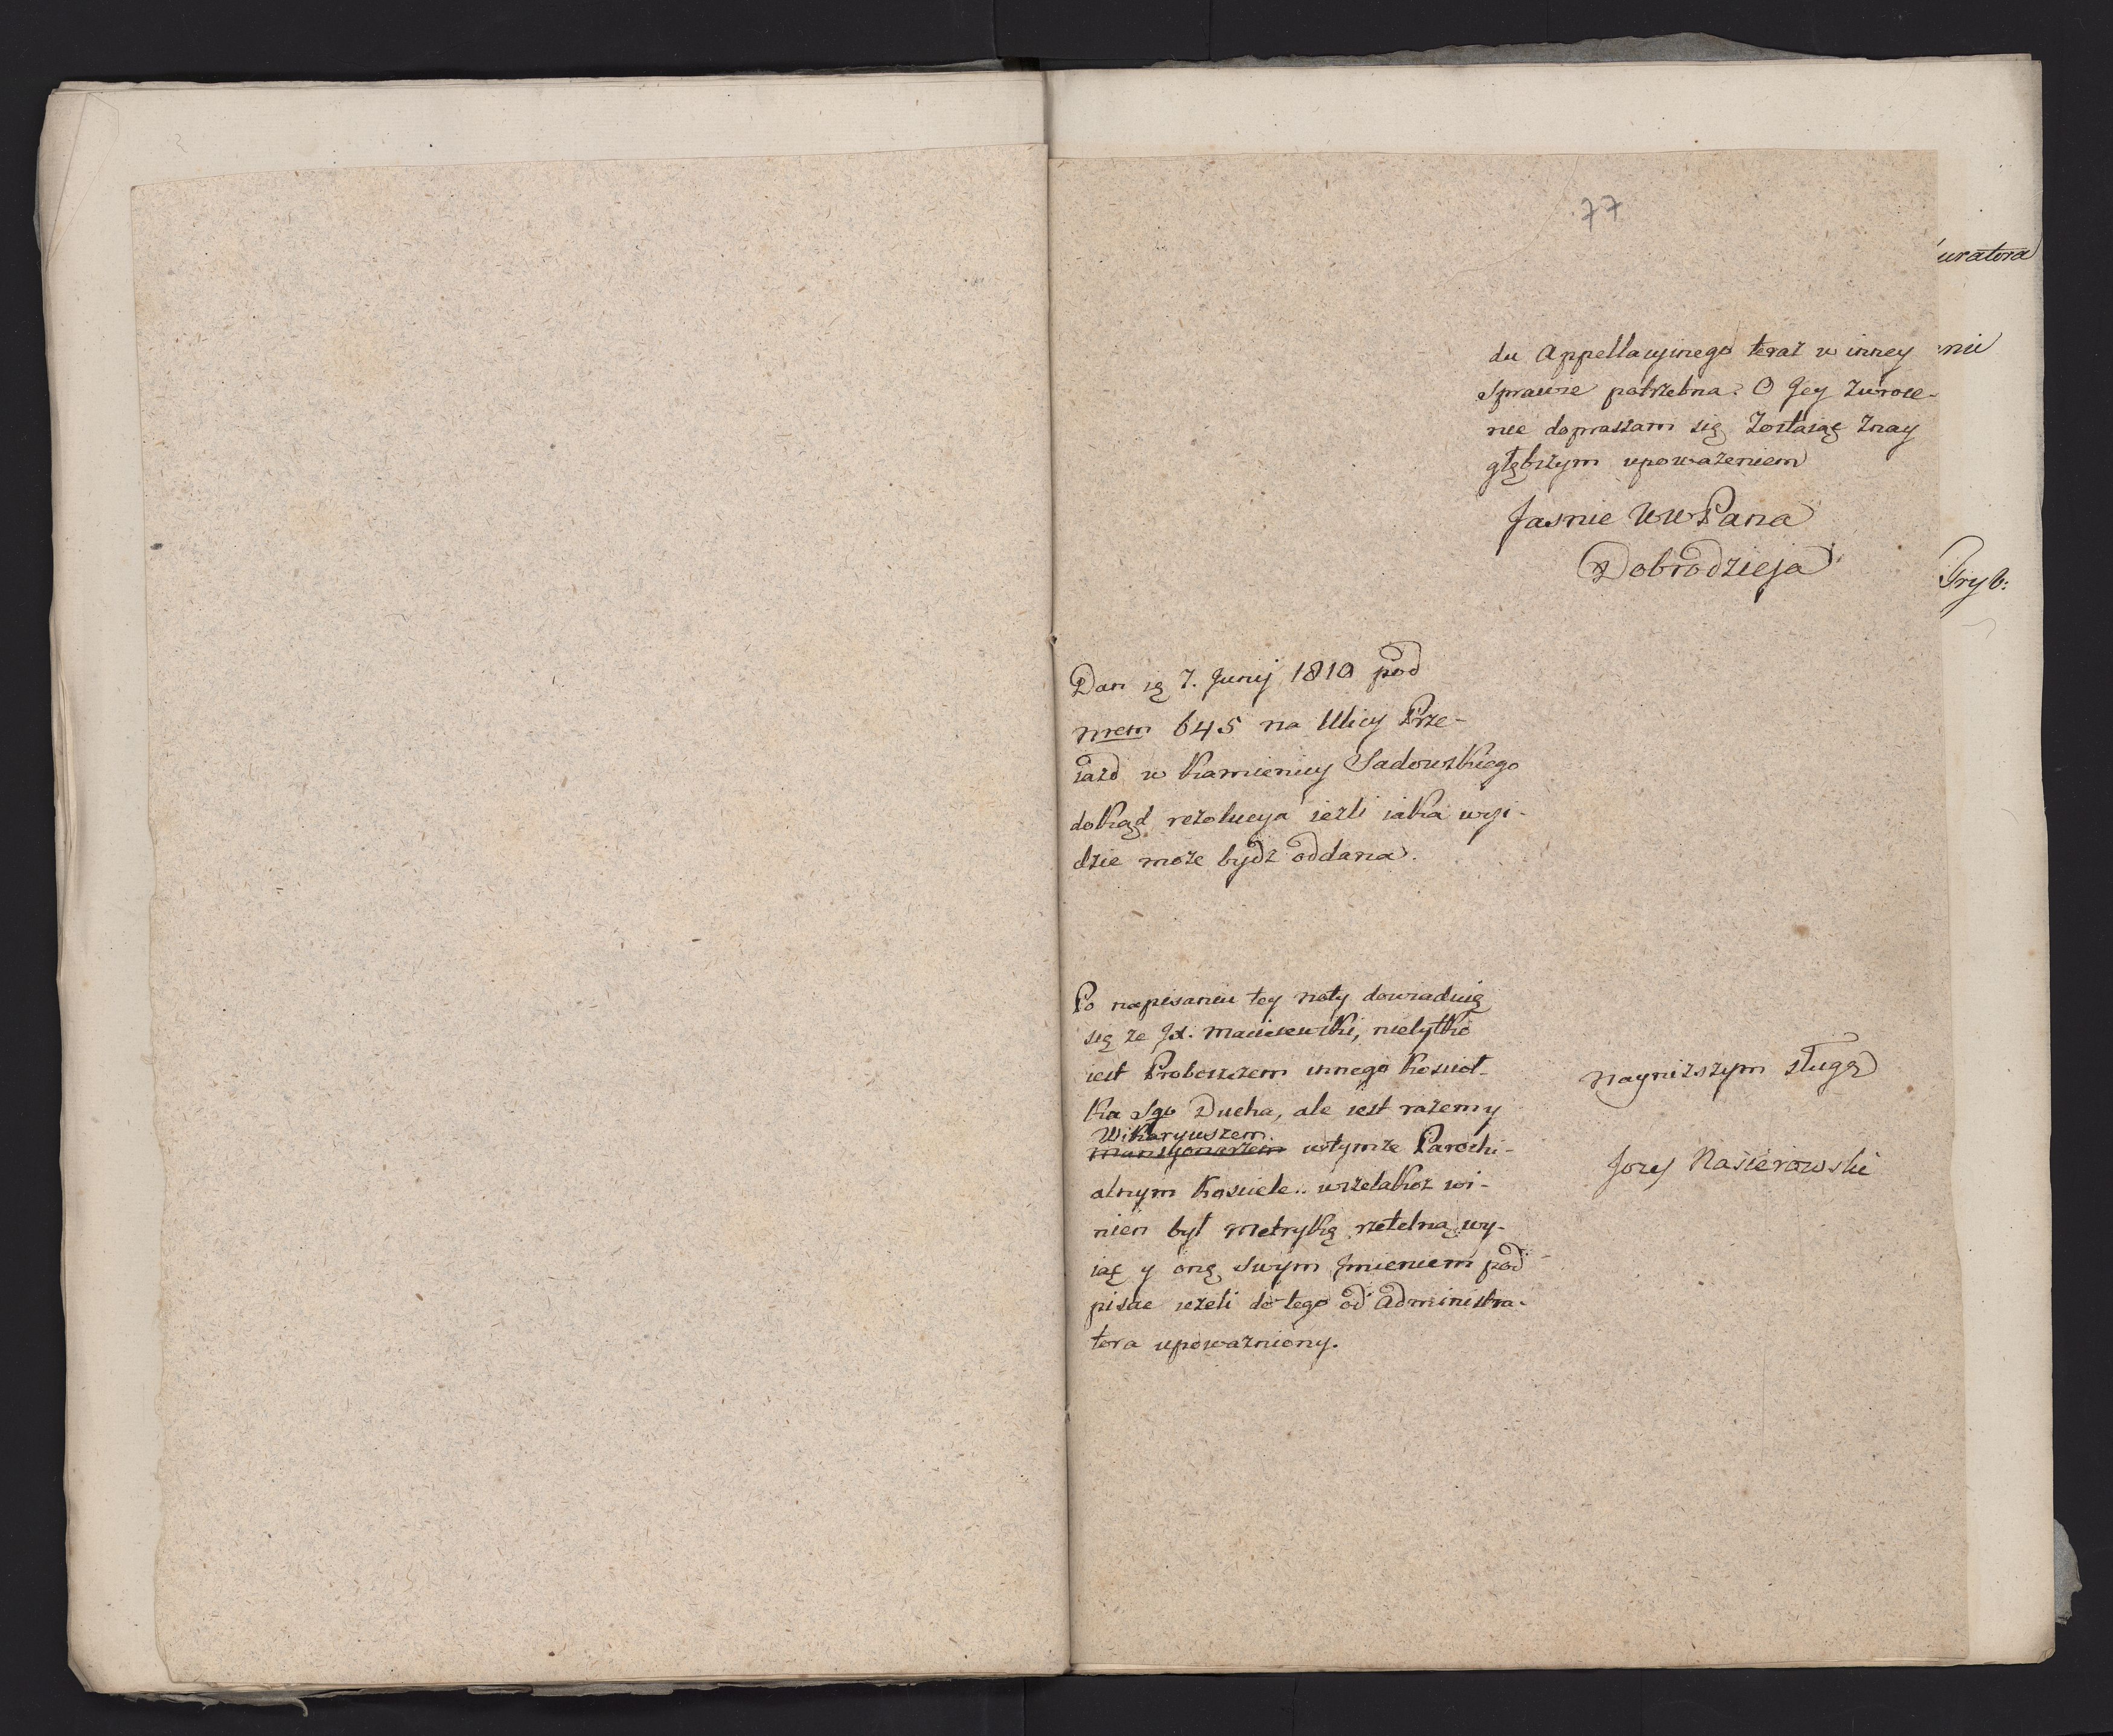 77
du Appellacyinego teraz w inney
Sprawie potrzebna. O Jey zwroce-
nie dopraszam się zostaiąc znay
głębszym upoważeniem
Jasnie WW Pana
Dobrodzieja
Dan ię 7. Junij 1810 pod
nrem 645 na Ulicy Prze-
iazd w Kamienicy Sadowskiego
dokąd rezolucya ieżli iaka wyi-
dzie może bydz oddana.
Po napisaniu tey noty dowiaduię
się że JX. Maciiewski, nietylko
iest Proboszczem innego Kosciół-
ka Sgo Ducha, ale iest razem y
Wikaryuszem
Mansyonarzem wtymże Parochi-
alnym Kosciele.. wszelakoż wi-
nien był metrykę rzetelną wy-
iąć y onę swym Jmieniem pod
pisać ieżeli do tego od Administra-
tora upoważniony.
Nayniższym sługą
Jozef Nasierowski
uratora
niu
Tryb: